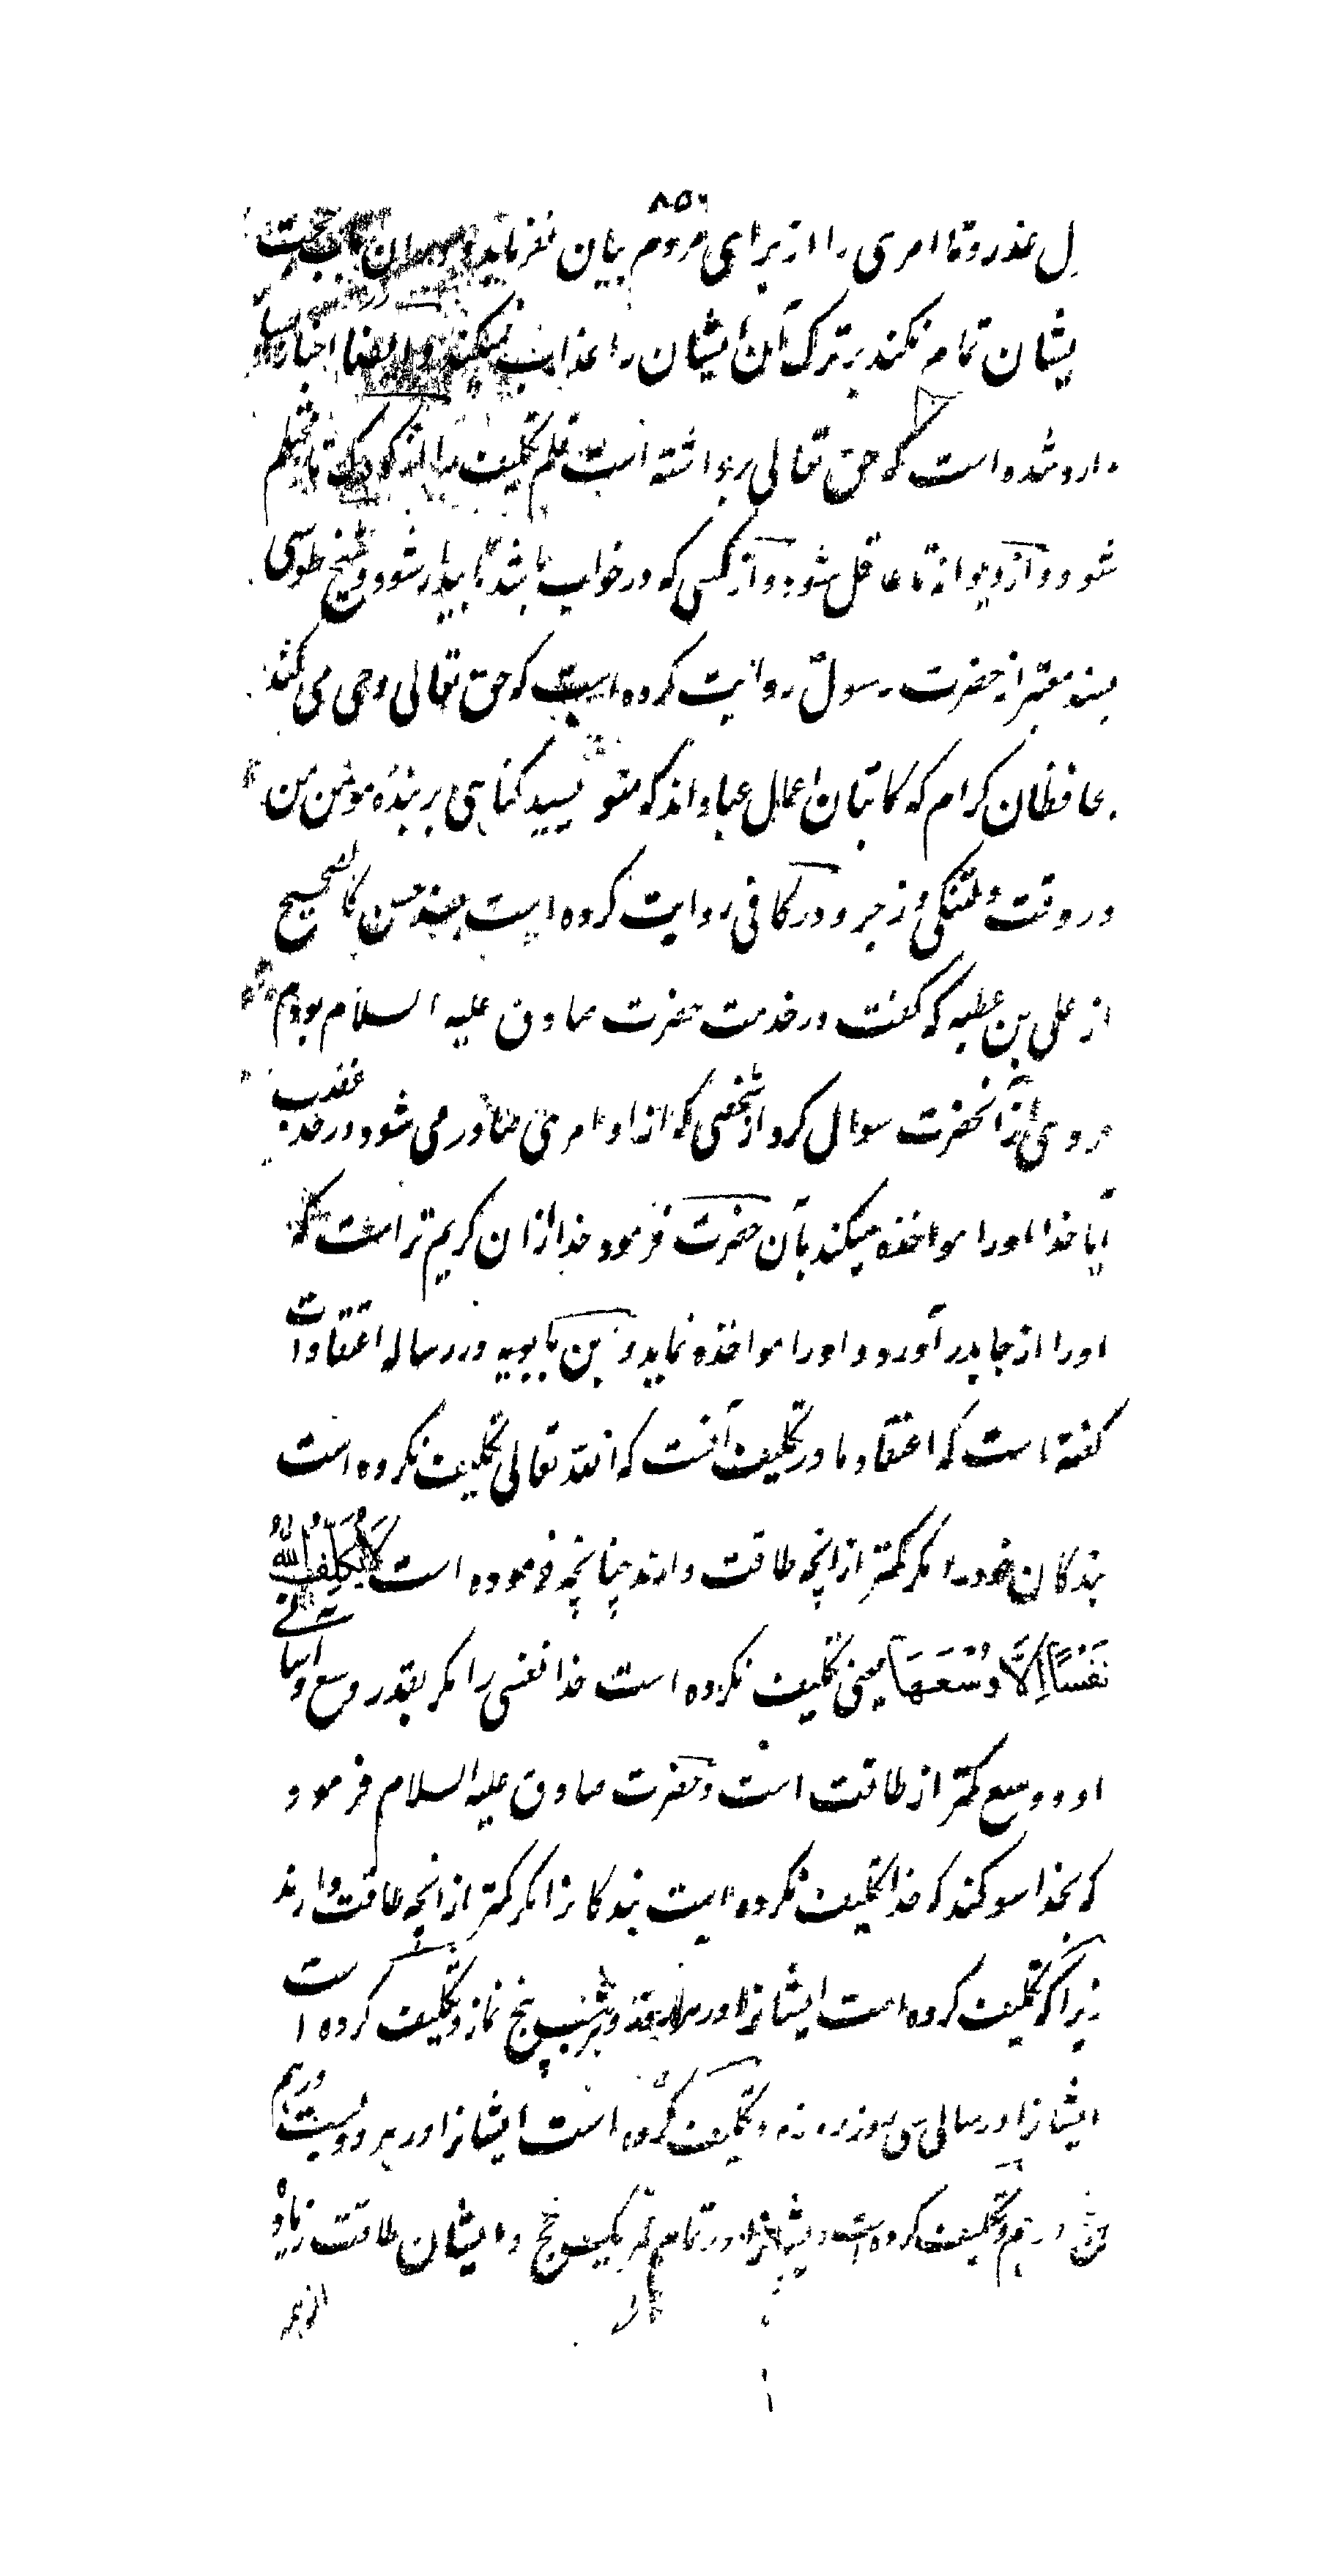 ۸۵۶
ل عذر و تا امری را از برای مردم بیان نفرماید و حجت
یشان تمام نکند بر ترک آن ایشان را عذاب نمیکند و ایضا
وارد شده است که حق تعالی برداشته است قلم تکلیف کودک تا محتلم
شود و از دیوانه تا عاقل شود و از کسی که در خواب باشد تا بیدار شود و شیخ طوسی
بسند معتبر از حضرت رسول روایت کرده است که حق تعالی وحی می کند
بحافظان کرام که کاتبان اعمال عباد اند که منویسید گناهی بر بنده مومن من
در وقت دلتنگی و زجر و در کافی روایت کرده است بسند حسن کالصحیح
از علی بن عطیه که گفت در خدمت حضرت صادق علیه السلام بودم
مردی از آنحضرت سوال کرد از شخصی که از او امری صادر می شود در حد غضب
آیا خدا اورا مواخذه میکند بآن حضرت فرمود خدا ازان کریم تر است که
اورا از جا بدر آورد و اورا مواخذه نماید و ابن بابویه در رساله اعتقادات
گفته است که اعتقاد ما در تکلیف آنست که الله تعالی تکلیف نکرده است
بندگان خود را مگر کمتر از انچه طاقت دارند چنانچه فرموده است لَا یُکَلِّفُ اللّٰهُ
نَفْسًا اِلَّا وُسْعَهَا یعنی تکلیف نکرده است خدا نفسی را مگر بقدر وسع و آسانی
او و وسع کمتر از طاقت است و حضرت صادق علیه السلام فرمود
که بخدا سوگند که خدا تکلیف نکرده است بندگانرا مگر کمتر از انچه طاقت دارند
زیرا که تکلیف کرده است ایشانرا در هر روز و شب پنج نماز و تکلیف کرده است
ایشانرا در سالی سی روز روزه و تکلیف کرده است ایشانرا در هر دویست درهم
پنج درهم و تکلیف کرده است ایشانرا در تمام عمر یک حج و ایشان طاقت زیاده